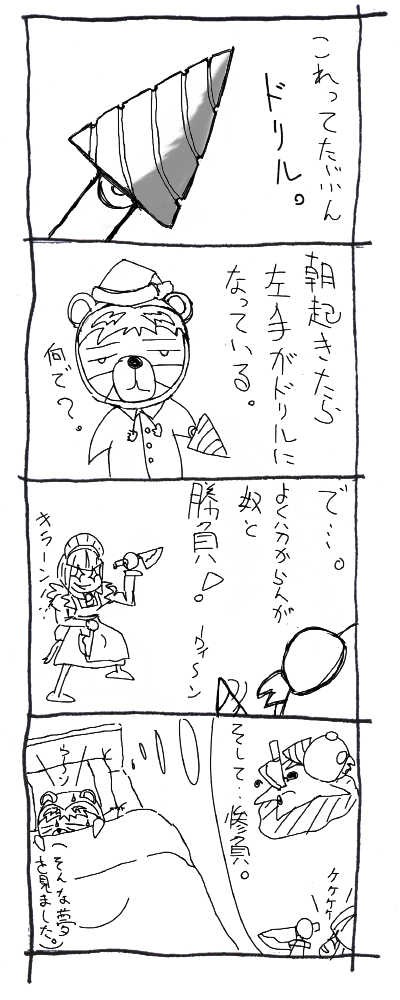 これってたぶん
ドリル。
朝起きたら
左手がドリルに
なっている。
何で？。
で…。
よく分からんが
奴と
勝負！。
ウィーン
キラーン
そして…惨負。
ケケケケ
うーン
（そんな夢
を見ました。）